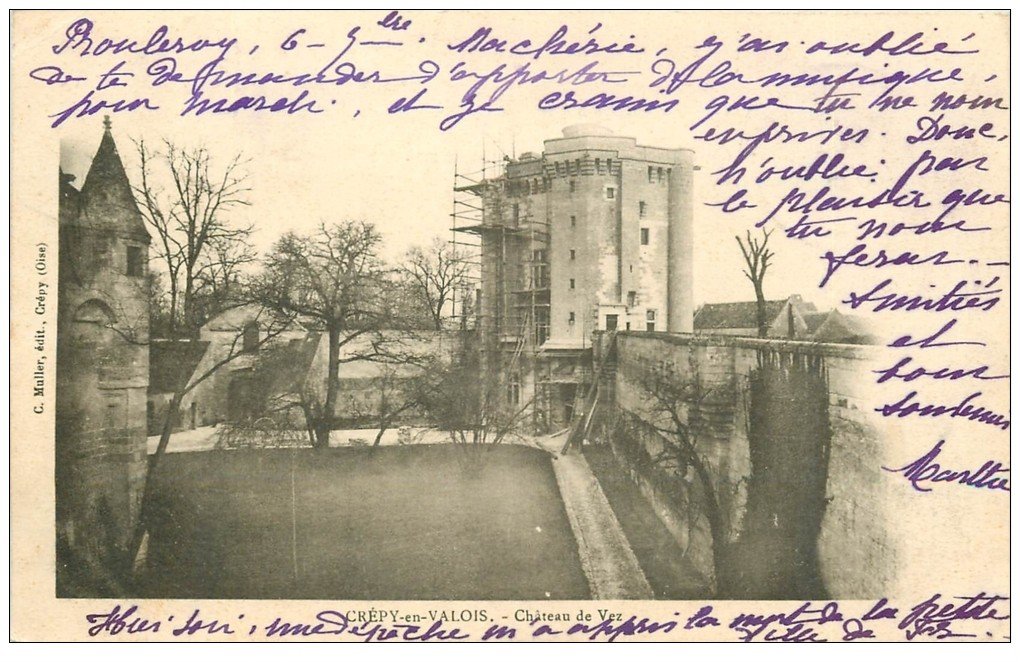 Ma chérie, j'ai oublié
de te demander d'apporter de la musique,
pour mardi, et je crains que tu ne nous
en prives. Donc,
n'oublie pas
le plaisir que
tu nous
feras. —
Amitiés
et
bon
souvenir
Marthe
C. Muller, édit., Crépy (Oise)
CRÉPY-en-VALOIS. - Château de Vez
Hier soir, une dépêche m'a appris la mort de la petite
fille de